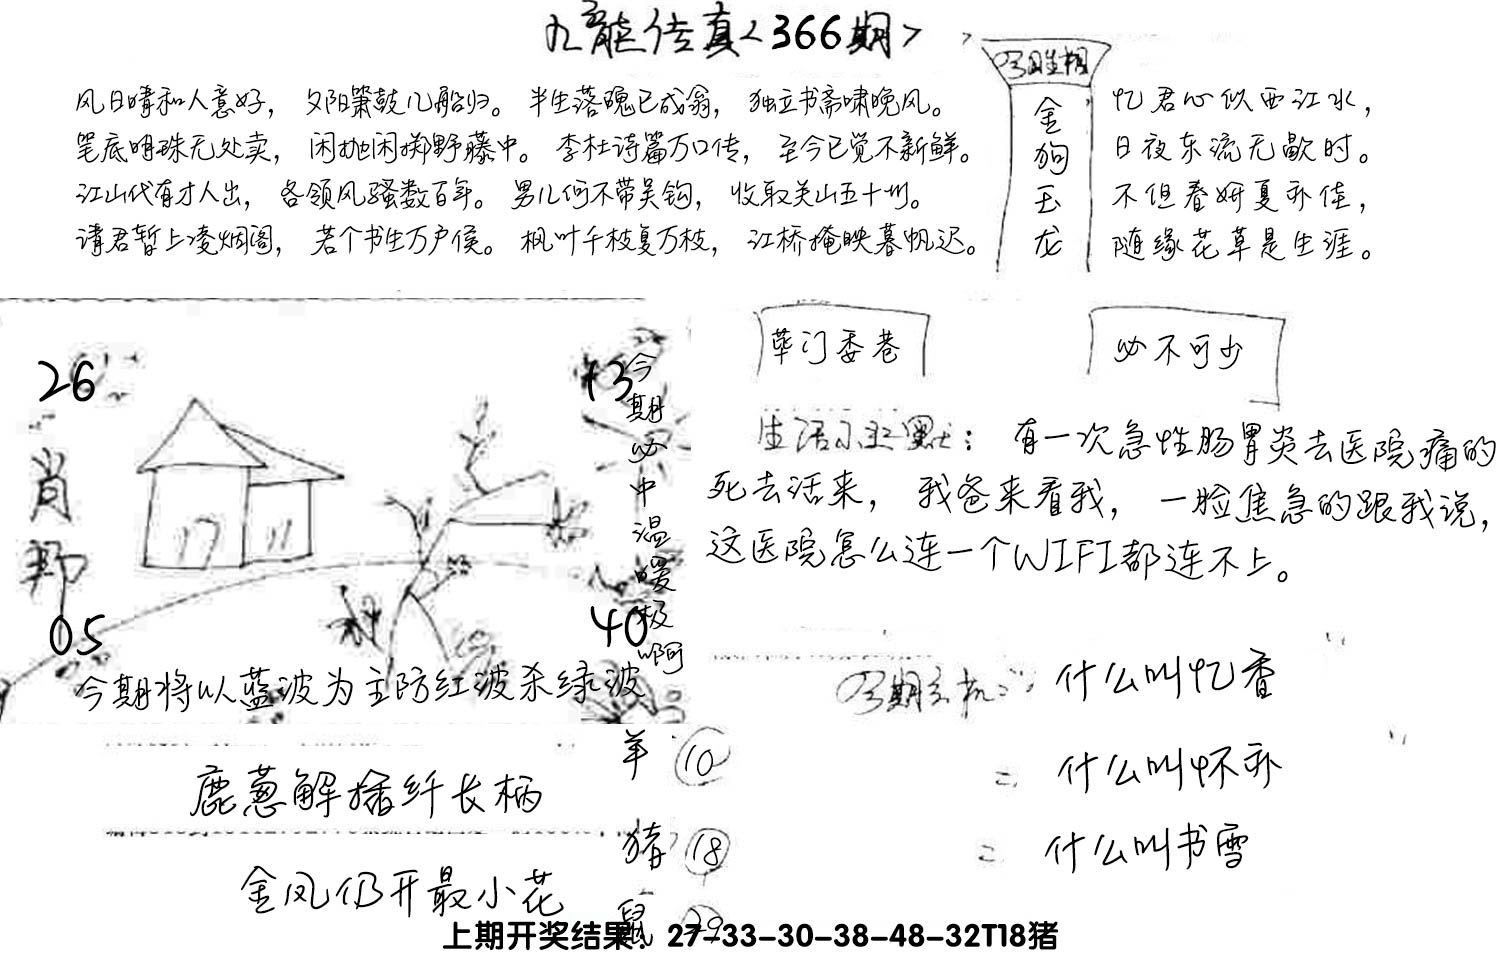 九龙传真<366期>
风日晴和人意好，夕阳箫鼓几船归。半生落魄已成翁，独立书斋啸晚风。
笔底明珠无处卖，闲抛闲掷野藤中。李杜诗篇万口传，至今已觉不新鲜。
江山代有才人出，各领风骚数百年。男儿何不带吴钩，收取关山五十州。
请君暂上凌烟阁，若个书生万户侯。枫叶千枝复万枝，江桥掩映暮帆迟。
金狗玉龙
忆君心似西江水，
日夜东流无歇时。
不但春妍夏亦佳，
随缘花草是生涯。
26
13
肖
05
40
今期必中温暖极啊
今期将以蓝波为主防红波杀绿波
荜门委巷
必不可少
有一次急性肠胃炎去医院痛的
死去活来，我爸来看我，一脸焦急的跟我说，
这医院怎么连一个WIFI都连不上。
什么叫忆香
二 什么叫怀亦
二 什么叫书雪
羊 10
猪 18
鼠 29
鹿葱解插纤长柄
金凤仍开最小花
上期开奖结果：27-33-30-38-48-32T18猪